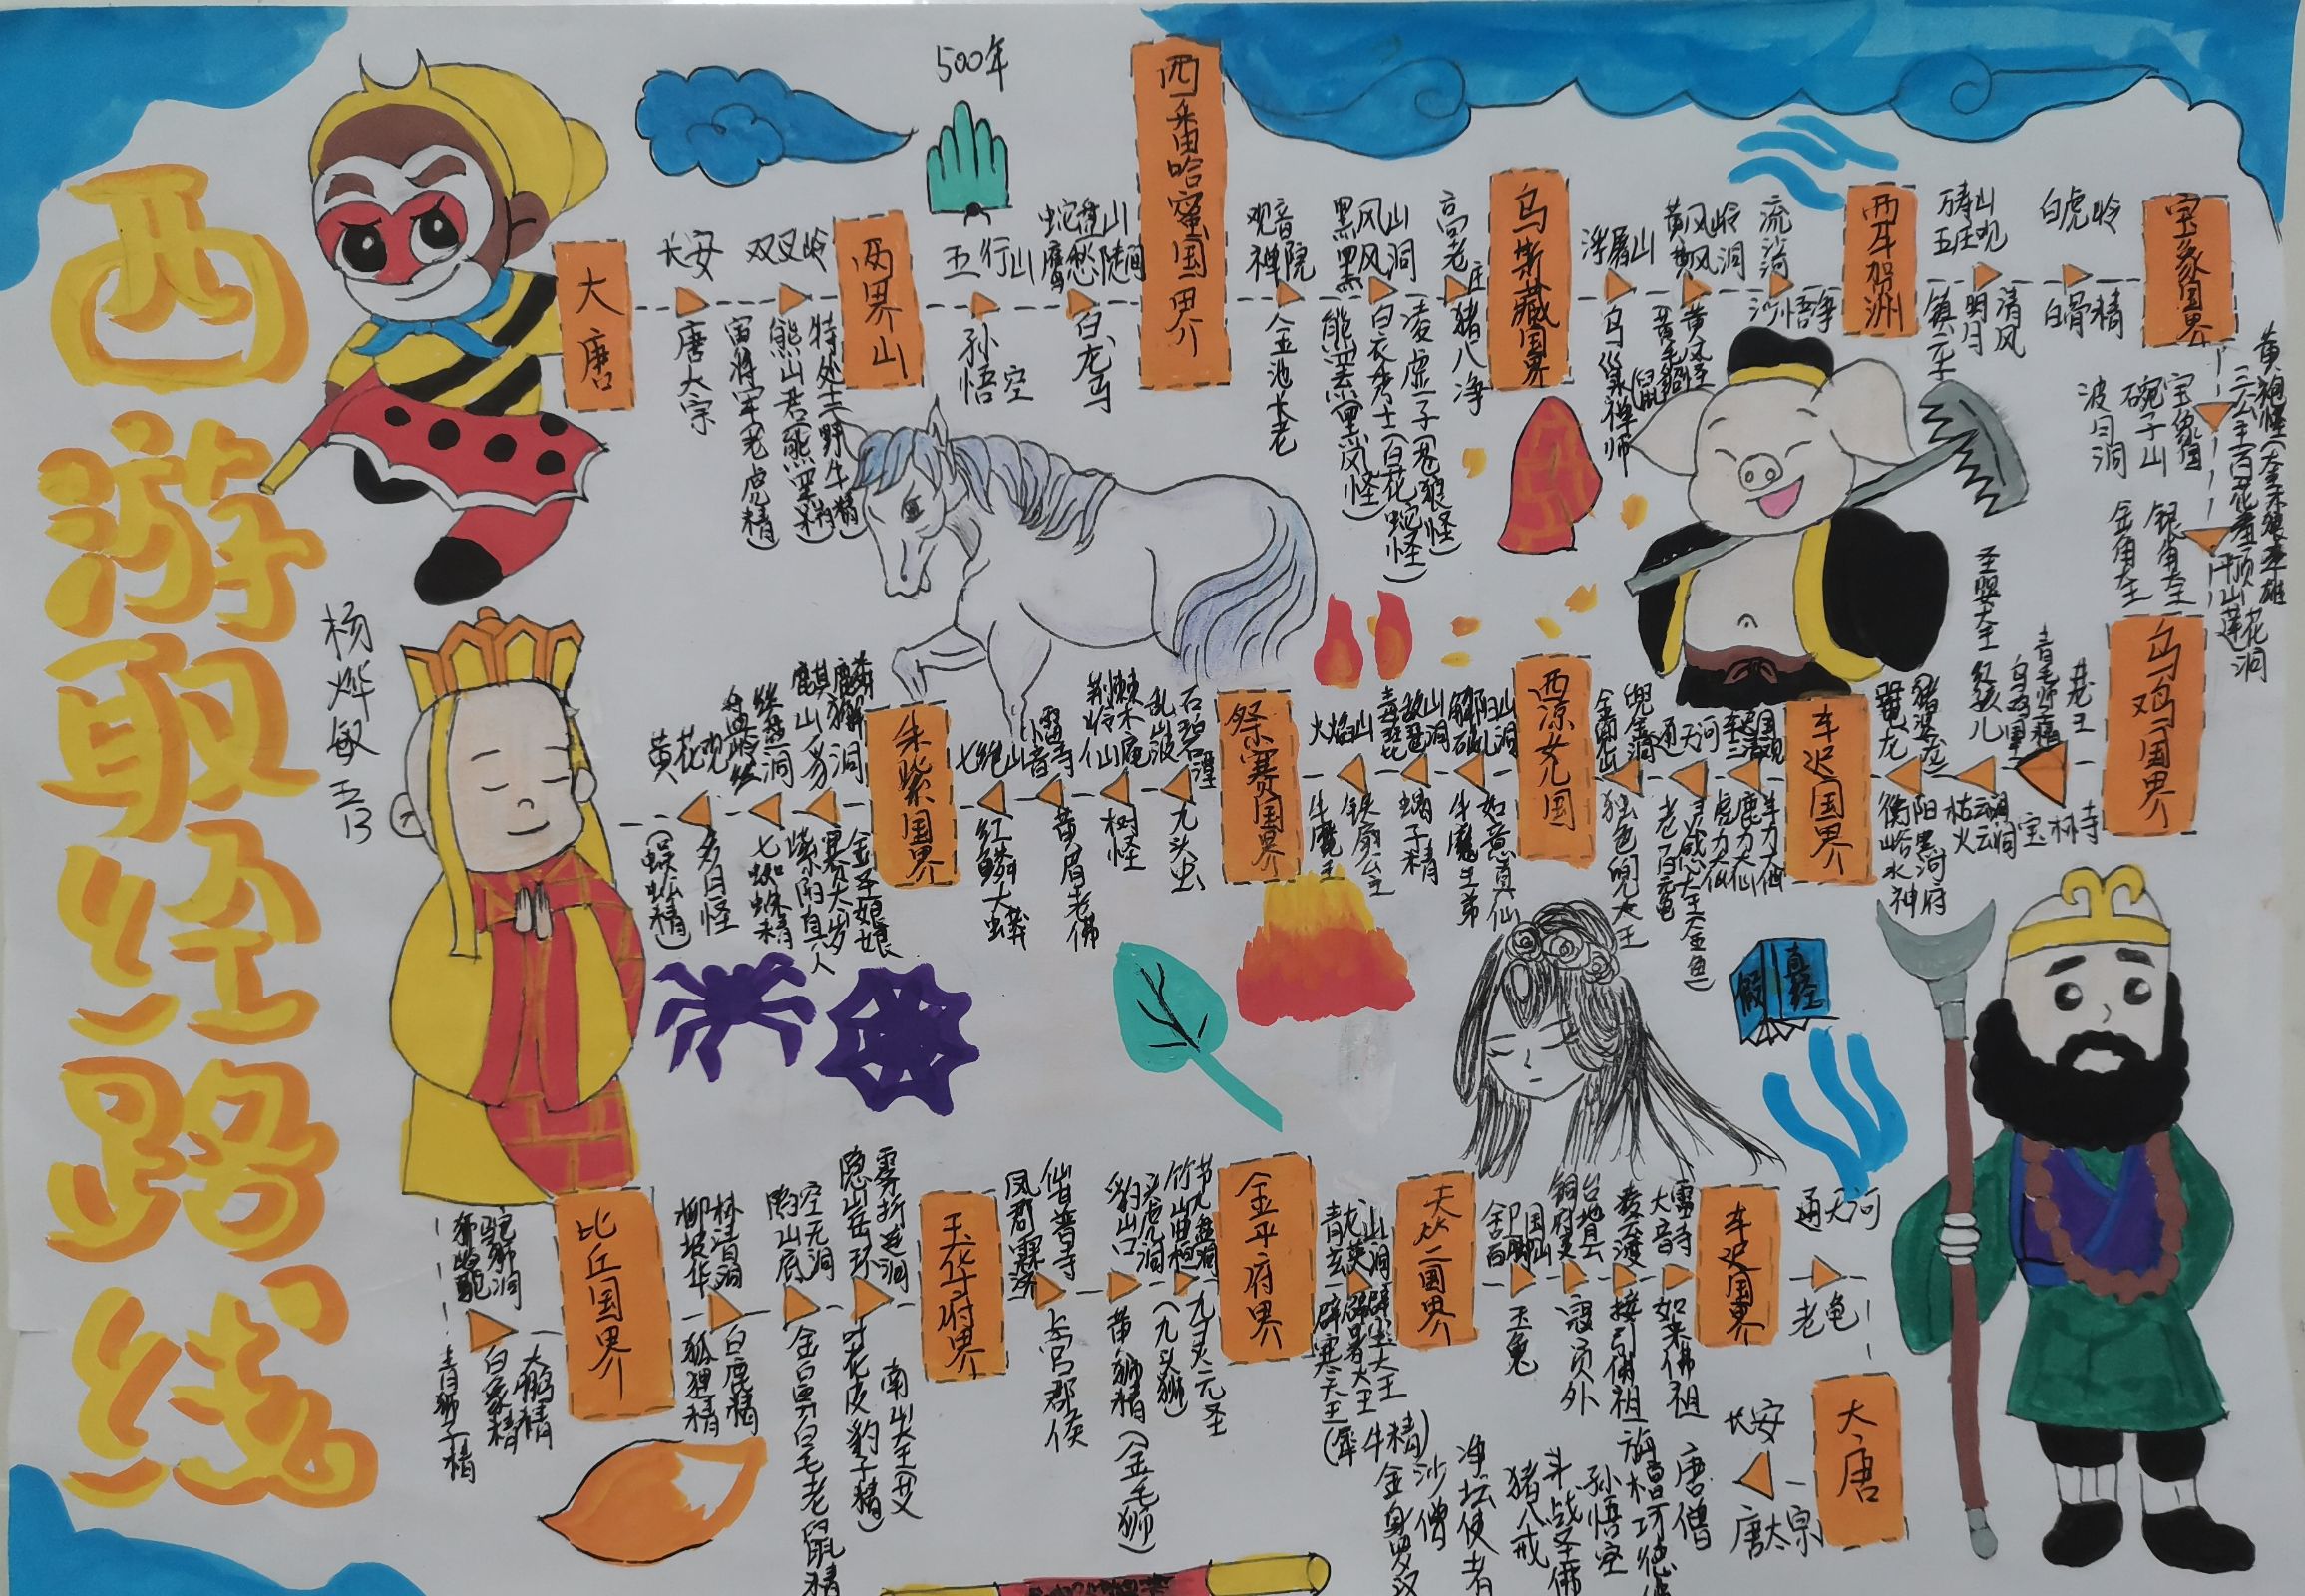 西游取经路线
杨烨敏
500年
大唐
长安
唐太宗
双叉岭
寅将军(老虎精)
熊山君(熊罴精)
特处士(野牛精)
两界山
五行山
孙悟空
蛇盘山
鹰愁陡涧
白龙马
西番哈蜜国界
观音禅院
金池长老
黑风山
黑风洞
熊罴(黑风怪)
白衣秀士(白花蛇怪)
凌虚子(苍狼怪)
高老庄
猪八净
乌斯藏国界
浮屠山
乌巢禅师
黄风岭
黄风洞
黄风怪
流沙河
沙悟净
西牛贺洲
万寿山
五庄观
镇元子
明月
清风
白虎岭
白骨精
宝象国界
宝象国
碗子山
波月洞
平顶山莲花洞
银角大王
金角大王
乌鸡国界
宝林寺
井龙王
圣婴大王
红孩儿
枯松涧
火云洞
衡阳峪黑水神府
车迟国界
车迟国
三清观
虎力大仙
鹿力大仙
羊力大仙
通天河
灵感大王(金鱼)
老白鼋
金兜山
金兜洞
独角兕大王
西凉女儿国
解阳山
如意真仙
牛魔王弟
毒敌山
琵琶洞
蝎子精
火焰山
铁扇公主
牛魔王
祭赛国界
乱石山
碧波潭
九头虫
荆棘岭
木仙庵
树怪
小雷音寺
黄眉老佛
七绝山
红鳞大蟒
朱紫国界
麒麟山
獬豸洞
金圣娘娘
赛太岁
紫阳真人
盘丝岭
盘丝洞
七蜘蛛精
黄花观
多目怪
(蜈蚣精)
假
真经
狮驼岭
狮驼洞
青狮子精
白象精
大鹏精
比丘国界
柳林坡
清华洞
狐狸精
白鹿精
陷空山
无底洞
金鼻白毛老鼠精
隐雾山
折岳连环洞
艾叶花皮豹子精
南山大王
玉华府界
凤仙郡
上官郡侯
豹头山
虎口洞
黄狮精(金毛狮)
竹节山
九曲盘桓洞
九灵元圣
(九头狮)
金平府界
青龙山
玄英洞
辟寒大王
辟暑大王
辟尘大王
(犀牛精)
天竺国界
玉兔
铜台府
地灵县
寇员外
凌云渡
接引佛祖
大雷音寺
如来佛祖
车迟国界
通天河
老龟
大唐
长安
唐太宗
唐僧
旃檀功德佛
孙悟空
斗战圣佛
猪八戒
净坛使者
沙僧
金身罗汉